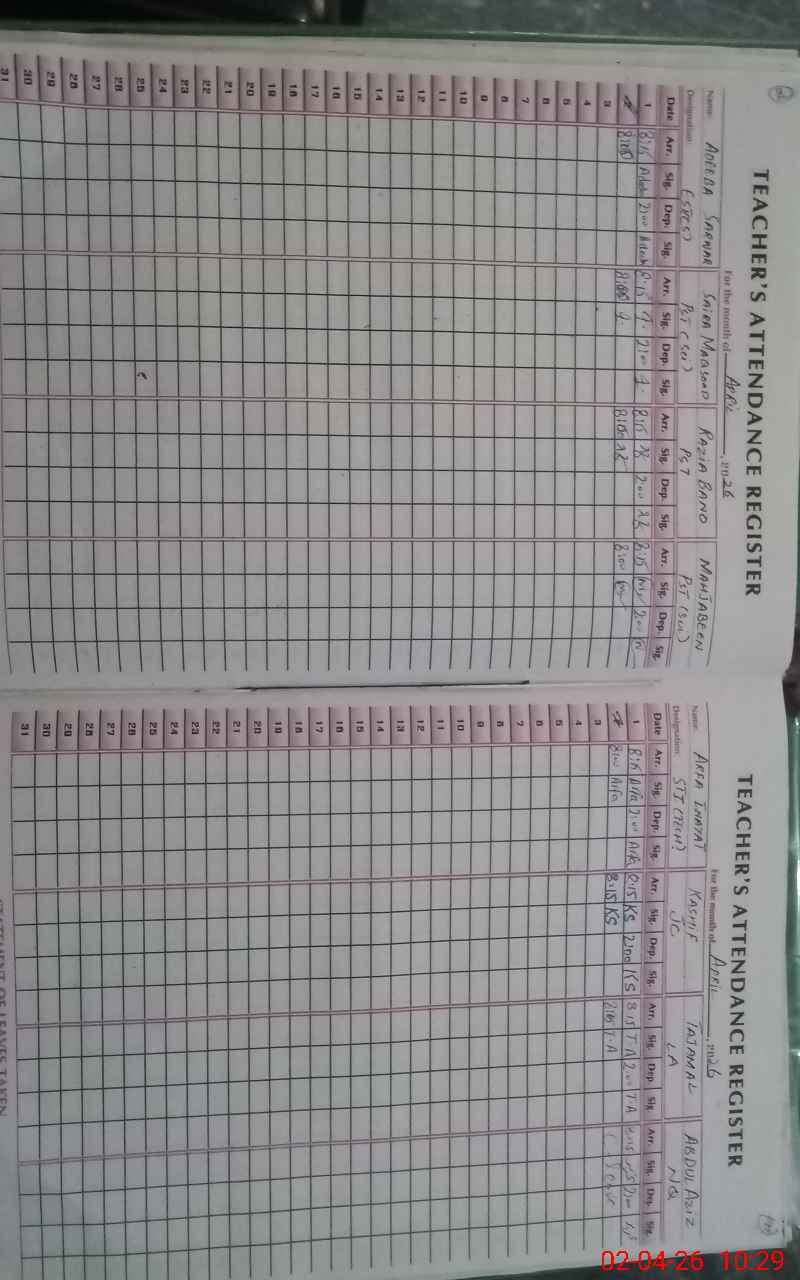 TEACHER'S ATTENDANCE REGISTER
For the month of April, 2026
Name: ADEEBA SARWAR SAIRA MAQSOOD RAZIA BANO MAHJABEEN
Designation: (SPCS) PST (Sci) PST PST (Sci)
Date Arr. Sig. Dep. Sig. Arr. Sig. Dep. Sig. Arr. Sig. Dep. Sig. Arr. Sig. Dep. Sig.
1 8:15 2:00 8:15 2:00 8:15 2:00 8:15 2:00
8:00
3
4
5
6
7
8
9
10
11
12
13
14
15
16
17
18
19
20
21
22
23
24
25
26
27
28
29
30
31
TEACHER'S ATTENDANCE REGISTER
For the month of April, 2026
Name: ARFA INAYAT KASHIF TAJAMAL ABDUL AZIZ
Designation: JC LA NQ
Date Arr. Sig. Dep. Sig. Arr. Sig. Dep. Sig. Arr. Sig. Dep. Sig. Arr. Sig. Dep. Sig.
1 8:15 Arfa 2:00 Arfa 8:15 KS 2:00 KS 8:15 T.A 2:00 T.A 8:15 2:00
8:00 Arfa 8:15 KS T.A
3
4
5
6
7
8
9
10
11
12
13
14
15
16
17
18
19
20
21
22
23
24
25
26
27
28
29
30
31
STATEMENT OF LEAVES TAKEN
02-04-26 10:29